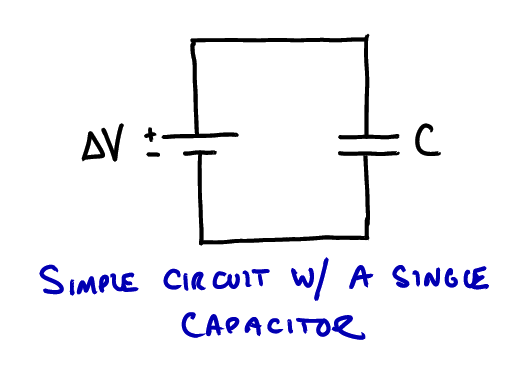 ΔV + - C
SIMPLE CIRCUIT W/ A SINGLE
CAPACITOR